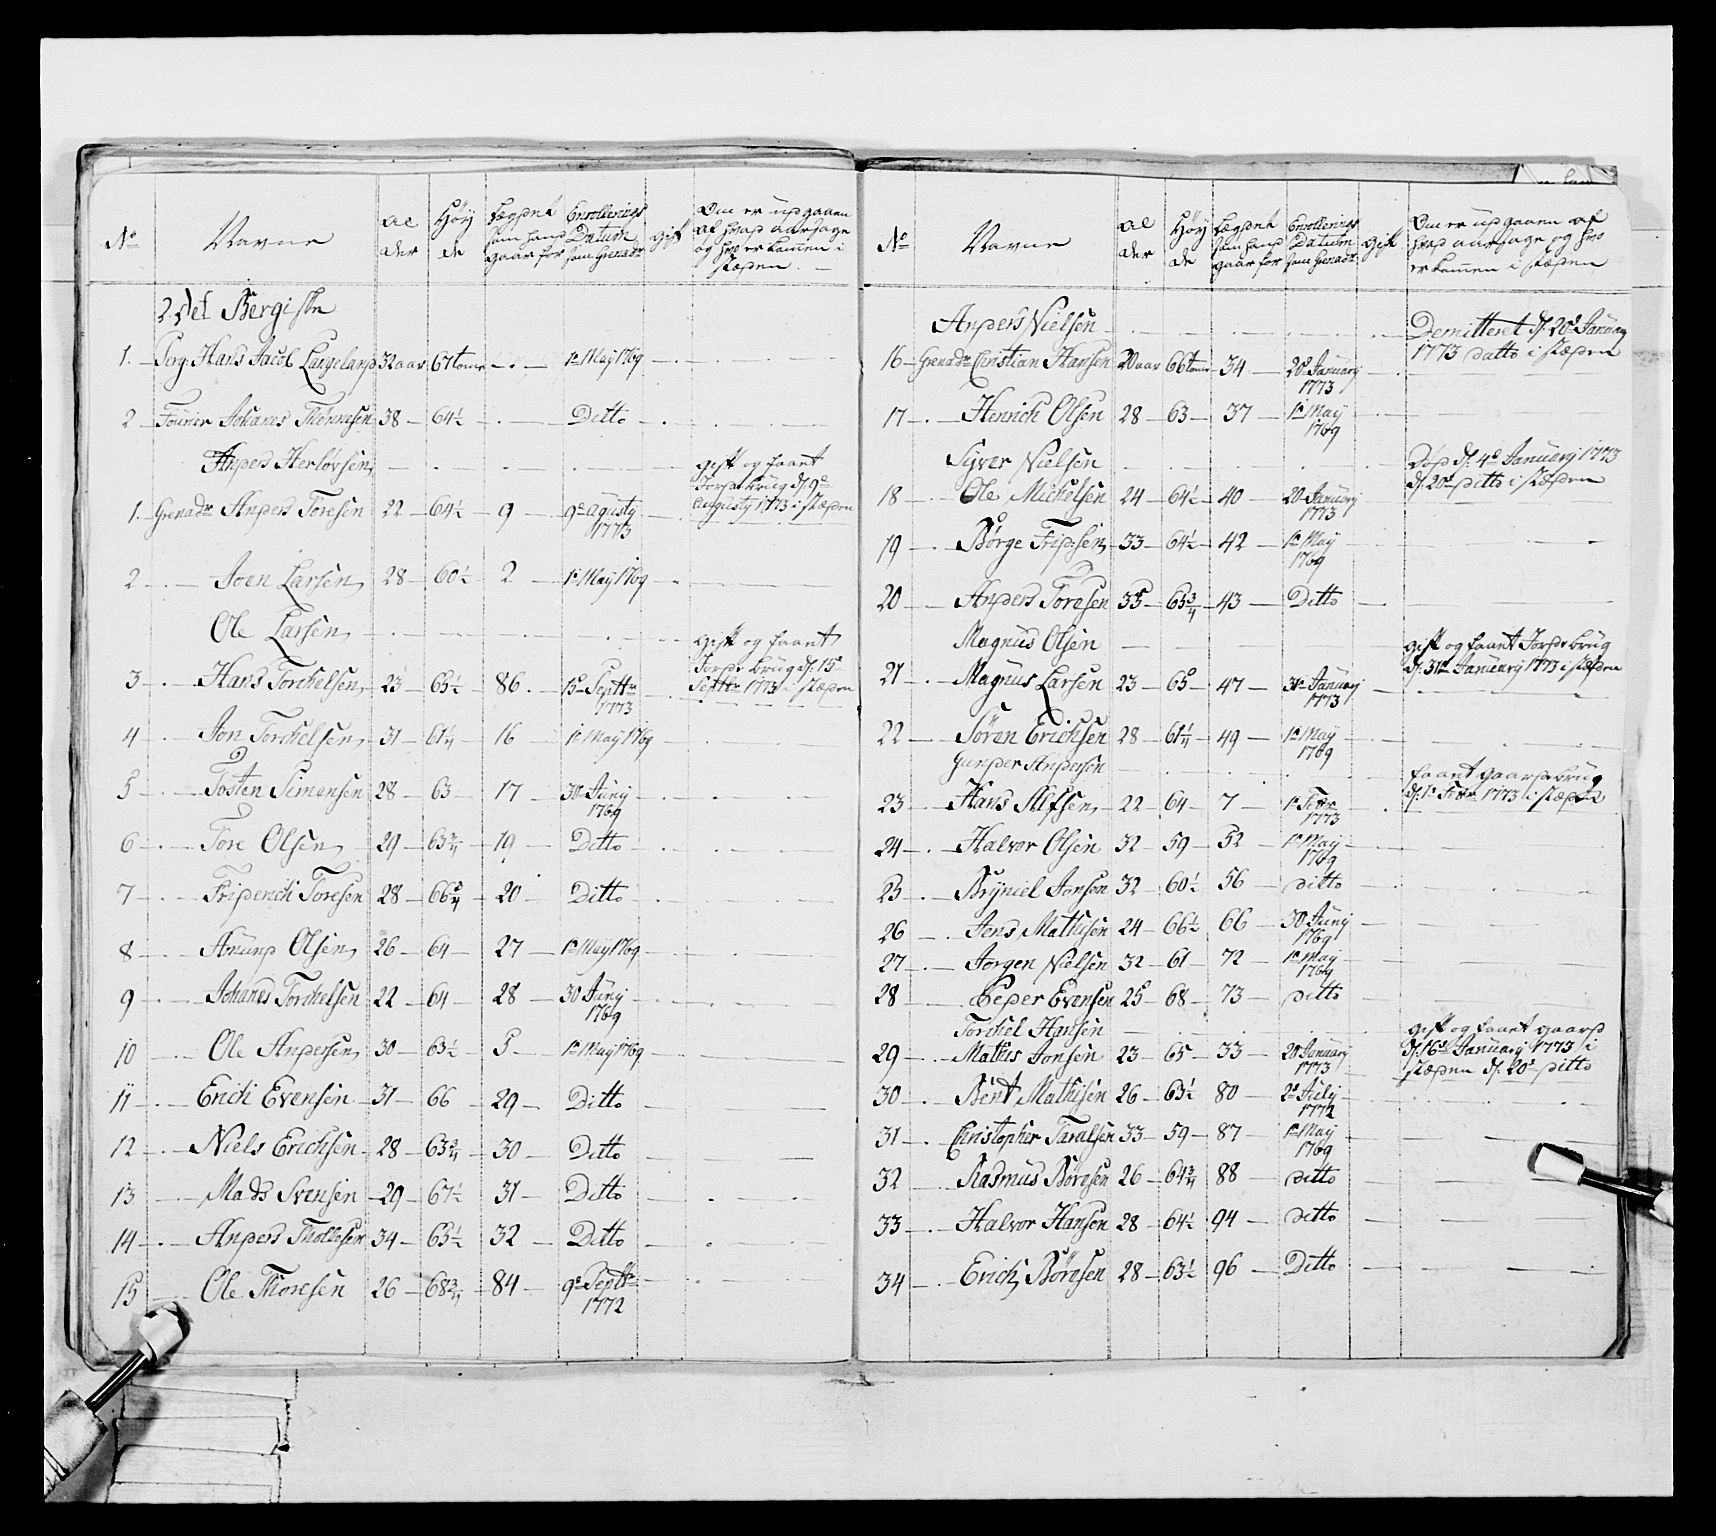 No
Navne
Al
der
Høy
de
Lægdet
som hand
gaar for
Enrollerings
Datum
som Grenadr
gift
Om er udgaaen
af hvad aarsage
og hvo er kommen i
stæden
2det Bergiske
1. Serg. Hans Jacob Langeland 32 aar 67 tomr 1e May 1769
2 Fourier Johanes Thønnesen 38 64½ Ditto
Anders Herlovsen gift og faaet
Jorde brug d. 9e
Augusty 1773 i stæden
1. Grenadr Anders Toresen 22 64½ 9 9e Agusty
1773
2 Joen Larsen 28 60½ 2 1e May 1769
Ole Larsen gift og faaet
Jorde brug d. 15e
Septbr 1773 i stæden
3 Hans Torchelsen 23 65½ 86 15e Septbr
1773
4 Jon Torchelsen 31 61¼ 16 1e May 1769
5 Tosten Simensen 28 63 17 30 Juny
1769
6 Tore Olsen 29 63¾ 19 Ditto
7 Friderich Toresen 28 66¾ 20 Ditto
8 Amund Olsen 26 64 27 1e May 1769
9 Johanes Torchelsen 22 64 28 30 Juny
1769
10 Ole Andersen 30 63½ 5 1e May 1769
11 Erich Evensen 31 66 29 Ditto
12 Niels Erichsen 28 63¾ 30 Ditto
13 Mads Svensen 29 67½ 31 Ditto
14 Anders Thollesen 34 63½ 32 Ditto
15 Ole Thoresen 26 68¾ 84 9e Septbr
1772
No
Navne
Al
der
Høy
de
Lægdet
som hand
gaar for
Enrollerings
Datum
som Grenadr
gift
Om er udgaaen af
hvad aarsage og hvo
er kommen i stæden
Anders Nielsen Demitteret d. 20e January
1773 datto i stæden
16 Grenadr Christian Hansen 20 aar 66 tomr 34 20 January
1773
17 Henrich Olsen 28 63 37 1e May
1769
Syver Nielsen Død d. 4e January 1773
d. 20e ditto i stæden
18 Ole Michelsen 24 64½ 40 20 January
1773
19 Børge Fridsen 33 64½ 42 1e May
1769
20 Anders Toresen 35 63¾ 43 Ditto
Magnus Olsen gift og faaet Jorde brug
d. 31e January 1773 i stæden
21 Magnus Larsen 23 65 47 31e January
1773
22 Søren Erichsen 28 61¼ 49 1e May
1769
Gunder Andersen faaet gaarde brug
d. 1e Febr 1773 i stæden
23 Hans Alfsen 22 64 7 1e Febr
1773
24 Halvor Olsen 32 59 52 1e May
1769
25 Bryniel Jonsen 32 60½ 56 ditto
26 Jens Mathisen 24 66½ 66 30 Juny
1769
27 Jørgen Nielsen 32 61 72 1e May
1769
28 Peder Evensen 25 68 73 ditto
Torchel Hansen gift og faaet gaard
d. 16e January 1773 i
stæden d. 20e ditto
29 Mathis Jonsen 23 65 33 20 January
1773
30 Bent Mathisen 26 63½ 80 2e July
1772
31 Christopher Taralsen 33 59 87 1e May
1769
32 Rasmus Børesen 26 64¾ 88 ditto
33 Halvor Hansen 28 64½ 94 ditto
34 Erich Børesen 28 63½ 96 Ditto